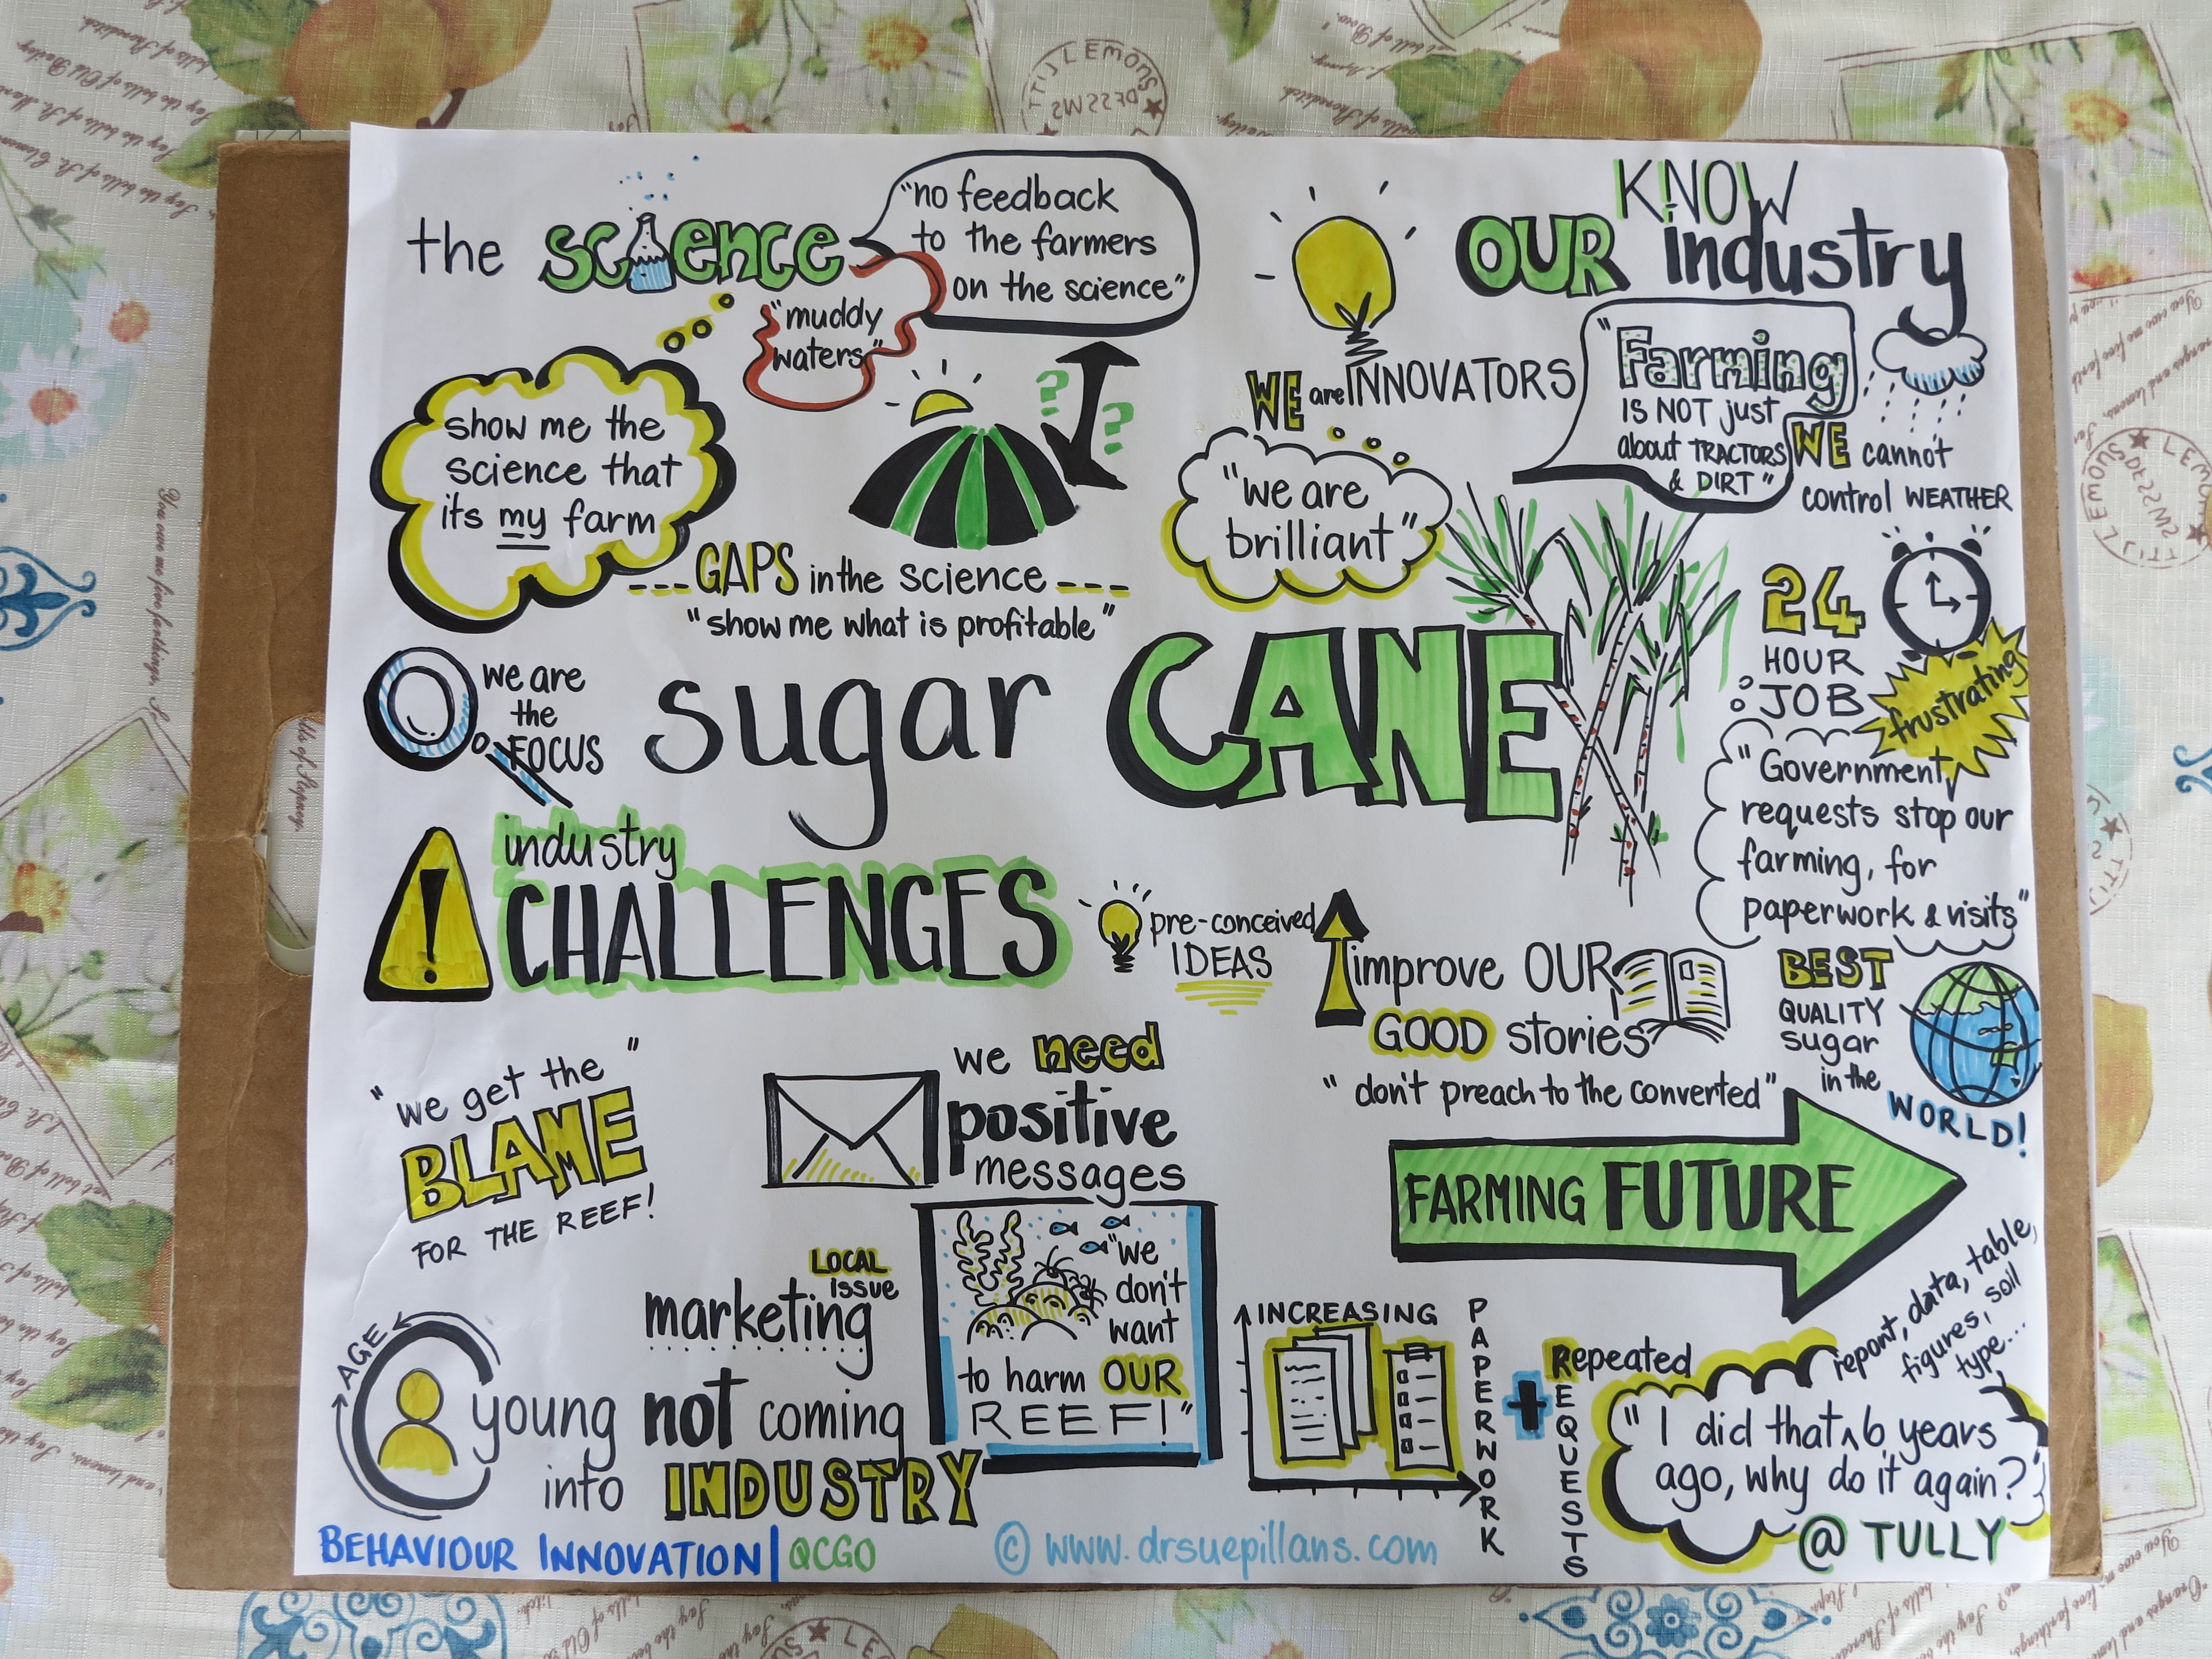 the science
"no feedback
to the farmers
on the science"
"muddy
waters"
show me the
science that
its my farm
? ?
GAPS in the science
"show me what is profitable"
KNOW
OUR industry
WE are INNOVATORS
"Farming
IS NOT just
about TRACTORS
& DIRT"
WE cannot
control WEATHER
"we are
brilliant"
24
HOUR
JOB
frustrating
"Government
requests stop our
farming, for
paperwork & visits"
we are
the
FOCUS
sugar CANE
!
industry
CHALLENGES
pre-conceived
IDEAS
improve OUR
GOOD stories
"don't preach to the converted"
BEST
QUALITY
sugar
in the
WORLD!
"we get the"
BLAME
FOR THE REEF!
we need
positive
messages
FARMING FUTURE
LOCAL
issue
marketing
"we
don't
want
to harm OUR
REEF!"
AGE
young not coming
into INDUSTRY
INCREASING
PAPERWORK
+
Repeated
REQUESTS
report, data, table,
figures, soil
type...
"I did that 6 years
ago, why do it again?"
BEHAVIOUR INNOVATION | QCGO
© www.drsuepillans.com
@ TULLY